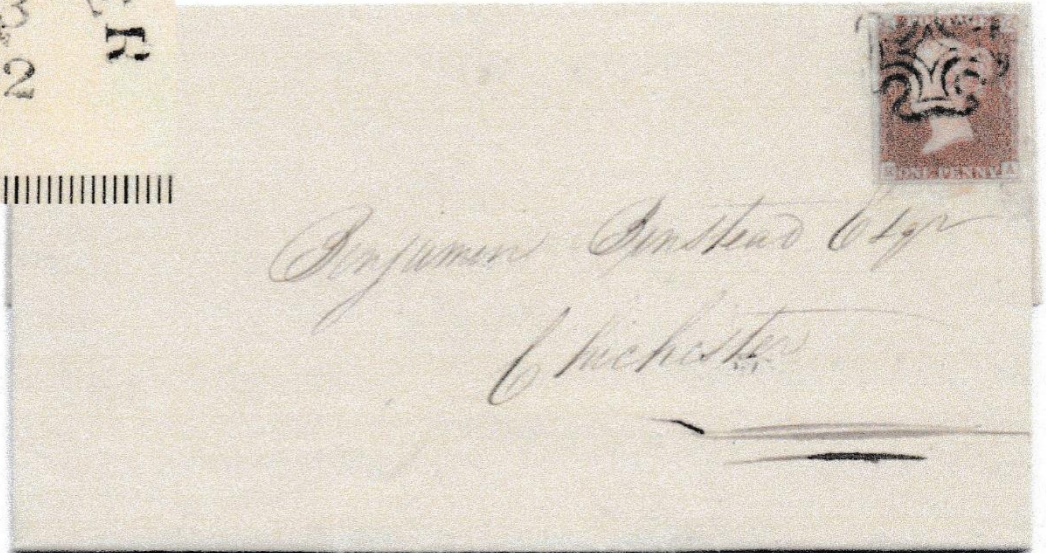 R
2
ONE PENNY A
Benjamin Binstead Esqr
Chichester